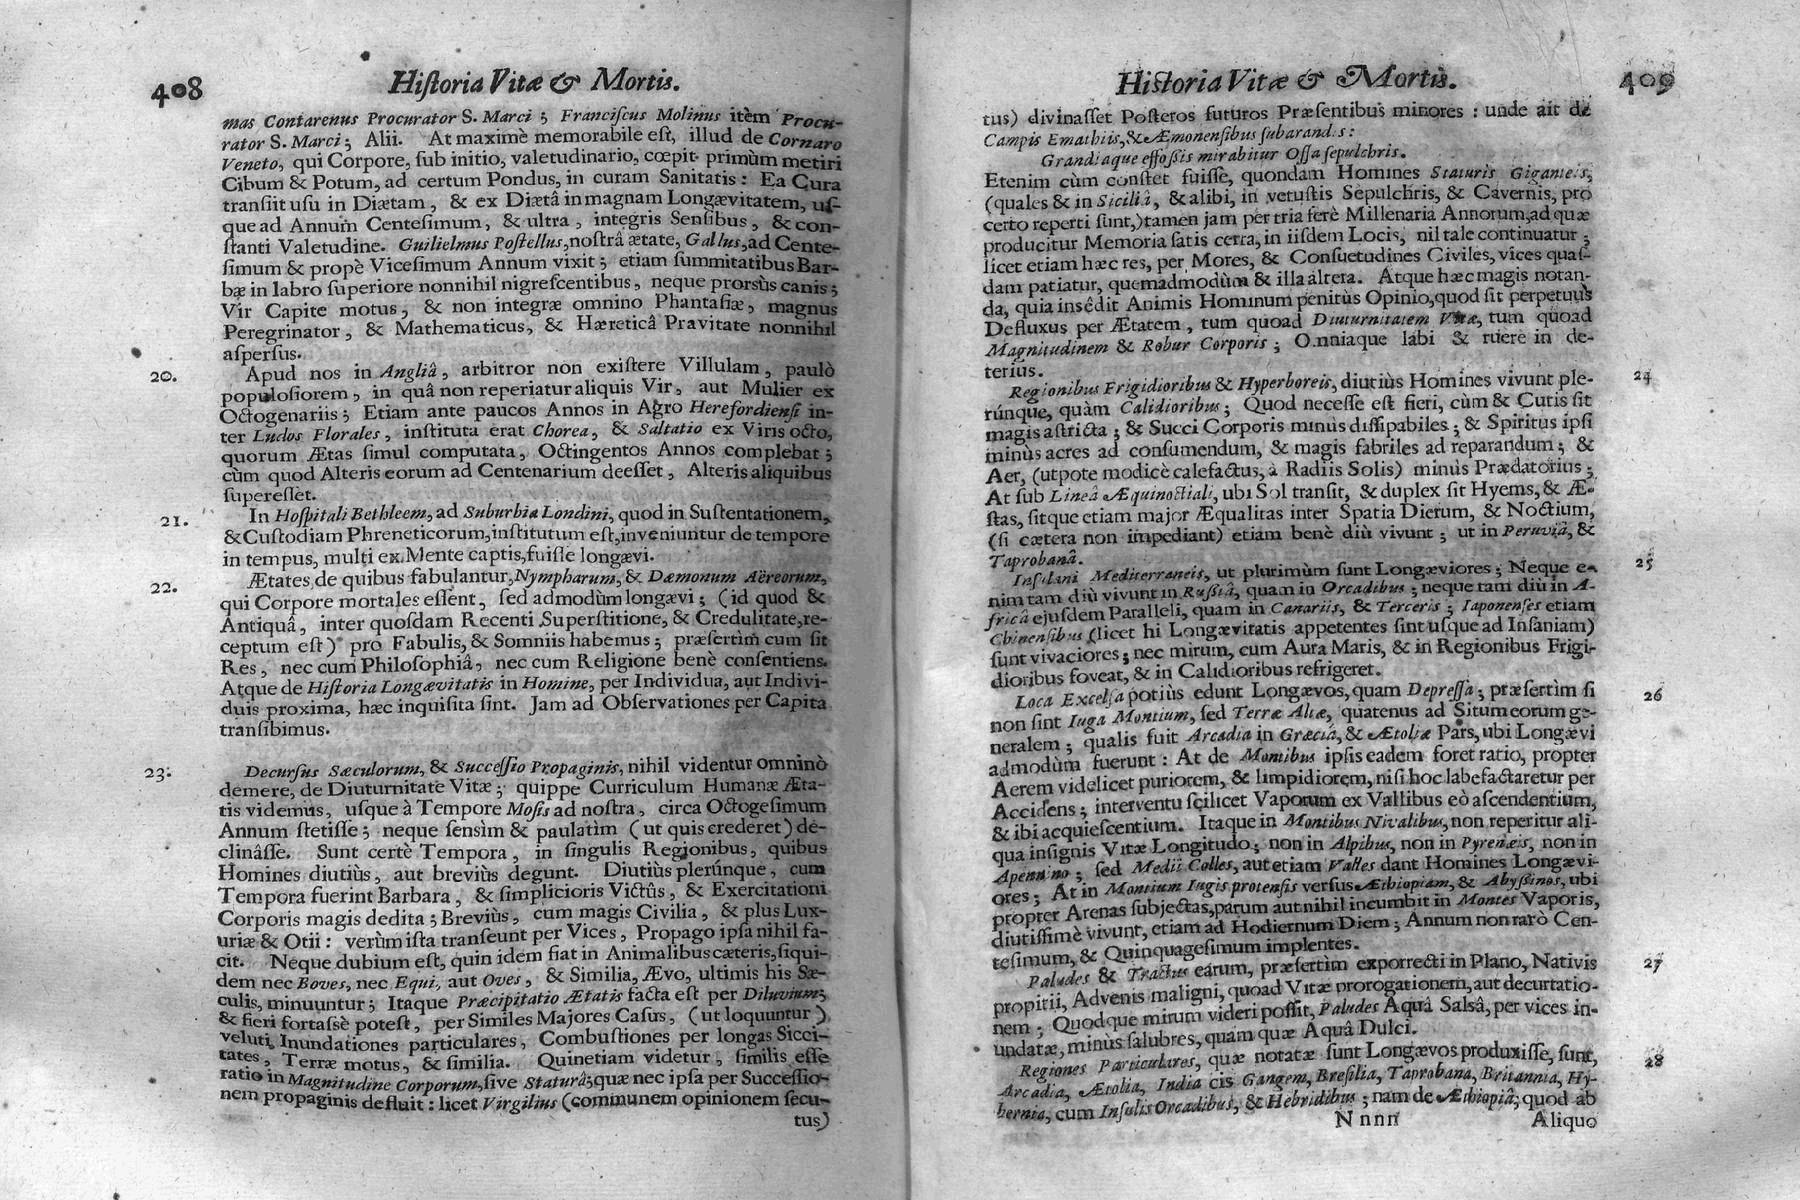 408
Historia Vitæ & Mortis.
mas Contarenus Procurator S. Marci; Franciscus Molinus itèm Procu-
rator S. Marci; Alii. At maximè memorabile est, illud de Cornaro
Veneto, qui Corpore, sub initio, valetudinario, cœpit primùm metiri
Cibum & Potum, ad certum Pondus, in curam Sanitatis: Ea Cura
transiit usu in Diætam, & ex Diætâ in magnam Longævitatem, us-
que ad Annum Centesimum, & ultra, integris Sensibus, & con-
stanti Valetudine. Guilielmus Postellus, nostrâ ætate, Gallus, ad Cente-
simum & propè Vicesimum Annum vixit; etiam summitatibus Bar-
bæ in labro superiore nonnihil nigrescentibus, neque prorsùs canis;
Vir Capite motus, & non integræ omnino Phantasiæ, magnus
Peregrinator, & Mathematicus, & Hæreticâ Pravitate nonnihil
aspersus.
20. Apud nos in Angliâ, arbitror non existere Villulam, paulò
populosiorem, in quâ non reperiatur aliquis Vir, aut Mulier ex
Octogenariis; Etiam ante paucos Annos in Agro Herefordiensi in-
ter Ludos Florales, instituta erat Chorea, & Saltatio ex Viris octo,
quorum Ætas simul computata, Octingentos Annos complebat;
cùm quod Alteris eorum ad Centenarium deesset, Alteris aliquibus
superessèt.
21. In Hospitali Bethleem, ad Suburbia Londini, quod in Sustentationem,
& Custodiam Phreneticorum, institutum est, inveniuntur de tempore
in tempus, multi ex Mente captis, fuisse longævi.
22. Ætates, de quibus fabulantur, Nympharum, & Dæmonum Aëreorum,
qui Corpore mortales essent, sed admodùm longævi; (id quod &
Antiquâ, inter quosdam Recenti Superstitione, & Credulitate, re-
ceptum est) pro Fabulis, & Somniis habemus; præsertìm cum sit
Res, nec cum Philosophiâ, nec cum Religione benè consentiens.
Atque de Historia Longævitatis in Homine, per Individua, aut Indivi-
duis proxima, hæc inquisita sint. Jam ad Observationes per Capita
transibimus.
23. Decursus Sæculorum, & Successio Propaginis, nihil videntur omninò
demere, de Diuturnitate Vitæ; quippe Curriculum Humanæ Æta-
tis videmus, usque à Tempore Mosis ad nostra, circa Octogesimum
Annum stetisse; neque sensìm & paulatìm (ut quis crederet) de-
clinâsse. Sunt certè Tempora, in singulis Regionibus, quibus
Homines diutiùs, aut breviùs degunt. Diutiùs plerúnque, cum
Tempora fuerint Barbara, & simplicioris Victûs, & Exercitationi
Corporis magis dedita; Breviùs, cum magis Civilia, & plus Lux-
uriæ & Otii: verùm ista transeunt per Vices, Propago ipsa nihil fa-
cit. Neque dubium est, quin idem fiat in Animalibus cæteris, siqui-
dem nec Boves, nec Equi, aut Oves, & Similia, Ævo, ultimis his Sæ-
culis, minuuntur; Itaque Præcipitatio Ætatis facta est per Diluvium;
& fieri fortassè potest, per Similes Majores Casus, (ut loquuntur)
veluti Inundationes particulares, Combustiones per longas Sicci-
tates, Terræ motus, & similia. Quinetiam videtur, similis esse
ratio in Magnitudine Corporum, sive Staturâ; quæ nec ipsa per Successio-
nem propaginis defluit: licet Virgilius (communem opinionem secu-
tus)
Historia Vitæ & Mortis.
409
tus) divinasset Posteros futuros Præsentibus minores: unde ait de
Campis Emathiis, & Æmonensibus subarandis:
Grandiaque effossis mirabitur Ossa sepulchris.
Etenim cùm constet fuisse, quondam Homines Staturis Giganteis,
(quales & in Siciliâ, & alibi, in vetustis Sepulchris, & Cavernis, pro
certo reperti sunt,) tamen jam per tria ferè Millenaria Annorum, ad quæ
producitur Memoria satis certa, in iisdem Locis, nil tale continuatur;
licet etiam hæc res, per Mores, & Consuetudines Civiles, vices quas-
dam patiatur, quemadmodùm & illa altera. Atque hæc magis notan-
da, quia insêdit Animis Hominum penitùs Opinio, quod sit perpetuus
Defluxus per Ætatem, tum quoad Diuturnitatem Vitæ, tum quoad
Magnitudinem & Robur Corporis; Omniaque labi & ruere in de-
terius.
24 Regionibus Frigidioribus & Hyperboreis, diutiùs Homines vivunt ple-
rúnque, quàm Calidioribus; Quod necesse est fieri, cùm & Cutis sit
magis astricta; & Succi Corporis minùs dissipabiles; & Spiritus ipsi
minùs acres ad consumendum, & magis fabriles ad reparandum; &
Aer, (utpote modicè calefactus, à Radiis Solis) minùs Prædatorius;
At sub Lineâ Æquinoctiali, ubi Sol transit, & duplex sit Hyems, & Æ-
stas, sitque etiam major Æqualitas inter Spatia Dierum, & Noctium,
(si cætera non impediant) etiam benè diù vivunt; ut in Peruviâ, &
Taprobanâ.
25 Insulani Mediterraneis, ut plurimùm sunt Longæviores; Neque e-
nim tam diù vivunt in Russiâ, quam in Orcadibus; neque tam diù in A-
fricâ ejusdem Paralleli, quam in Canariis, & Terceris; Iaponenses etiam
Chinensibus (licet hi Longævitatis appetentes sint usque ad Insaniam)
sunt vivaciores; nec mirum, cum Aura Maris, & in Regionibus Frigi-
dioribus foveat, & in Calidioribus refrigeret.
26 Loca Excelsa potiùs edunt Longævos, quam Depressa; præsertìm si
non sint Iuga Montium, sed Terræ Altæ, quatenus ad Situm eorum ge-
neralem; qualis fuit Arcadia in Græciâ, & Ætoliæ Pars, ubi Longævi
admodùm fuerunt: At de Montibus ipsis eadem foret ratio, propter
Aerem videlicet puriorem, & limpidiorem, nisi hoc labefactaretur per
Accidens; interventu scilicet Vaporum ex Vallibus eò ascendentium,
& ibi acquiescentium. Itaque in Montibus Nivalibus, non reperitur ali-
qua insignis Vitæ Longitudo; non in Alpibus, non in Pyrenæis, non in
Apennino; sed Medii Colles, aut etiam Valles dant Homines Longævi-
ores; At in Montium Iugis protensis versus Æthiopiam, & Abyssinos, ubi
propter Arenas subjectas, parum aut nihil incumbit in Montes Vaporis,
diutissimè vivunt, etiam ad Hodiernum Diem; Annum non rarò Cen-
tesimum, & Quinquagesimum implentes.
27 Paludes & Tractus earum, præsertìm exporrecti in Plano, Nativis
propitii, Advenis maligni, quoad Vitæ prorogationem, aut decurtatio-
nem; Quodque mirum videri possit, Paludes Aquâ Salsâ, per vices in-
undatæ, minùs salubres, quam quæ Aquâ Dulci.
28 Regiones Particulares, quæ notatæ sunt Longævos produxisse, sunt,
Arcadia, Ætolia, India cis Gangem, Bresilia, Taprobana, Britannia, Hy-
bernia, cum Insulis Orcadibus, & Hebridibus; nam de Æthiopiâ; quod ab
N nnn
Aliquo